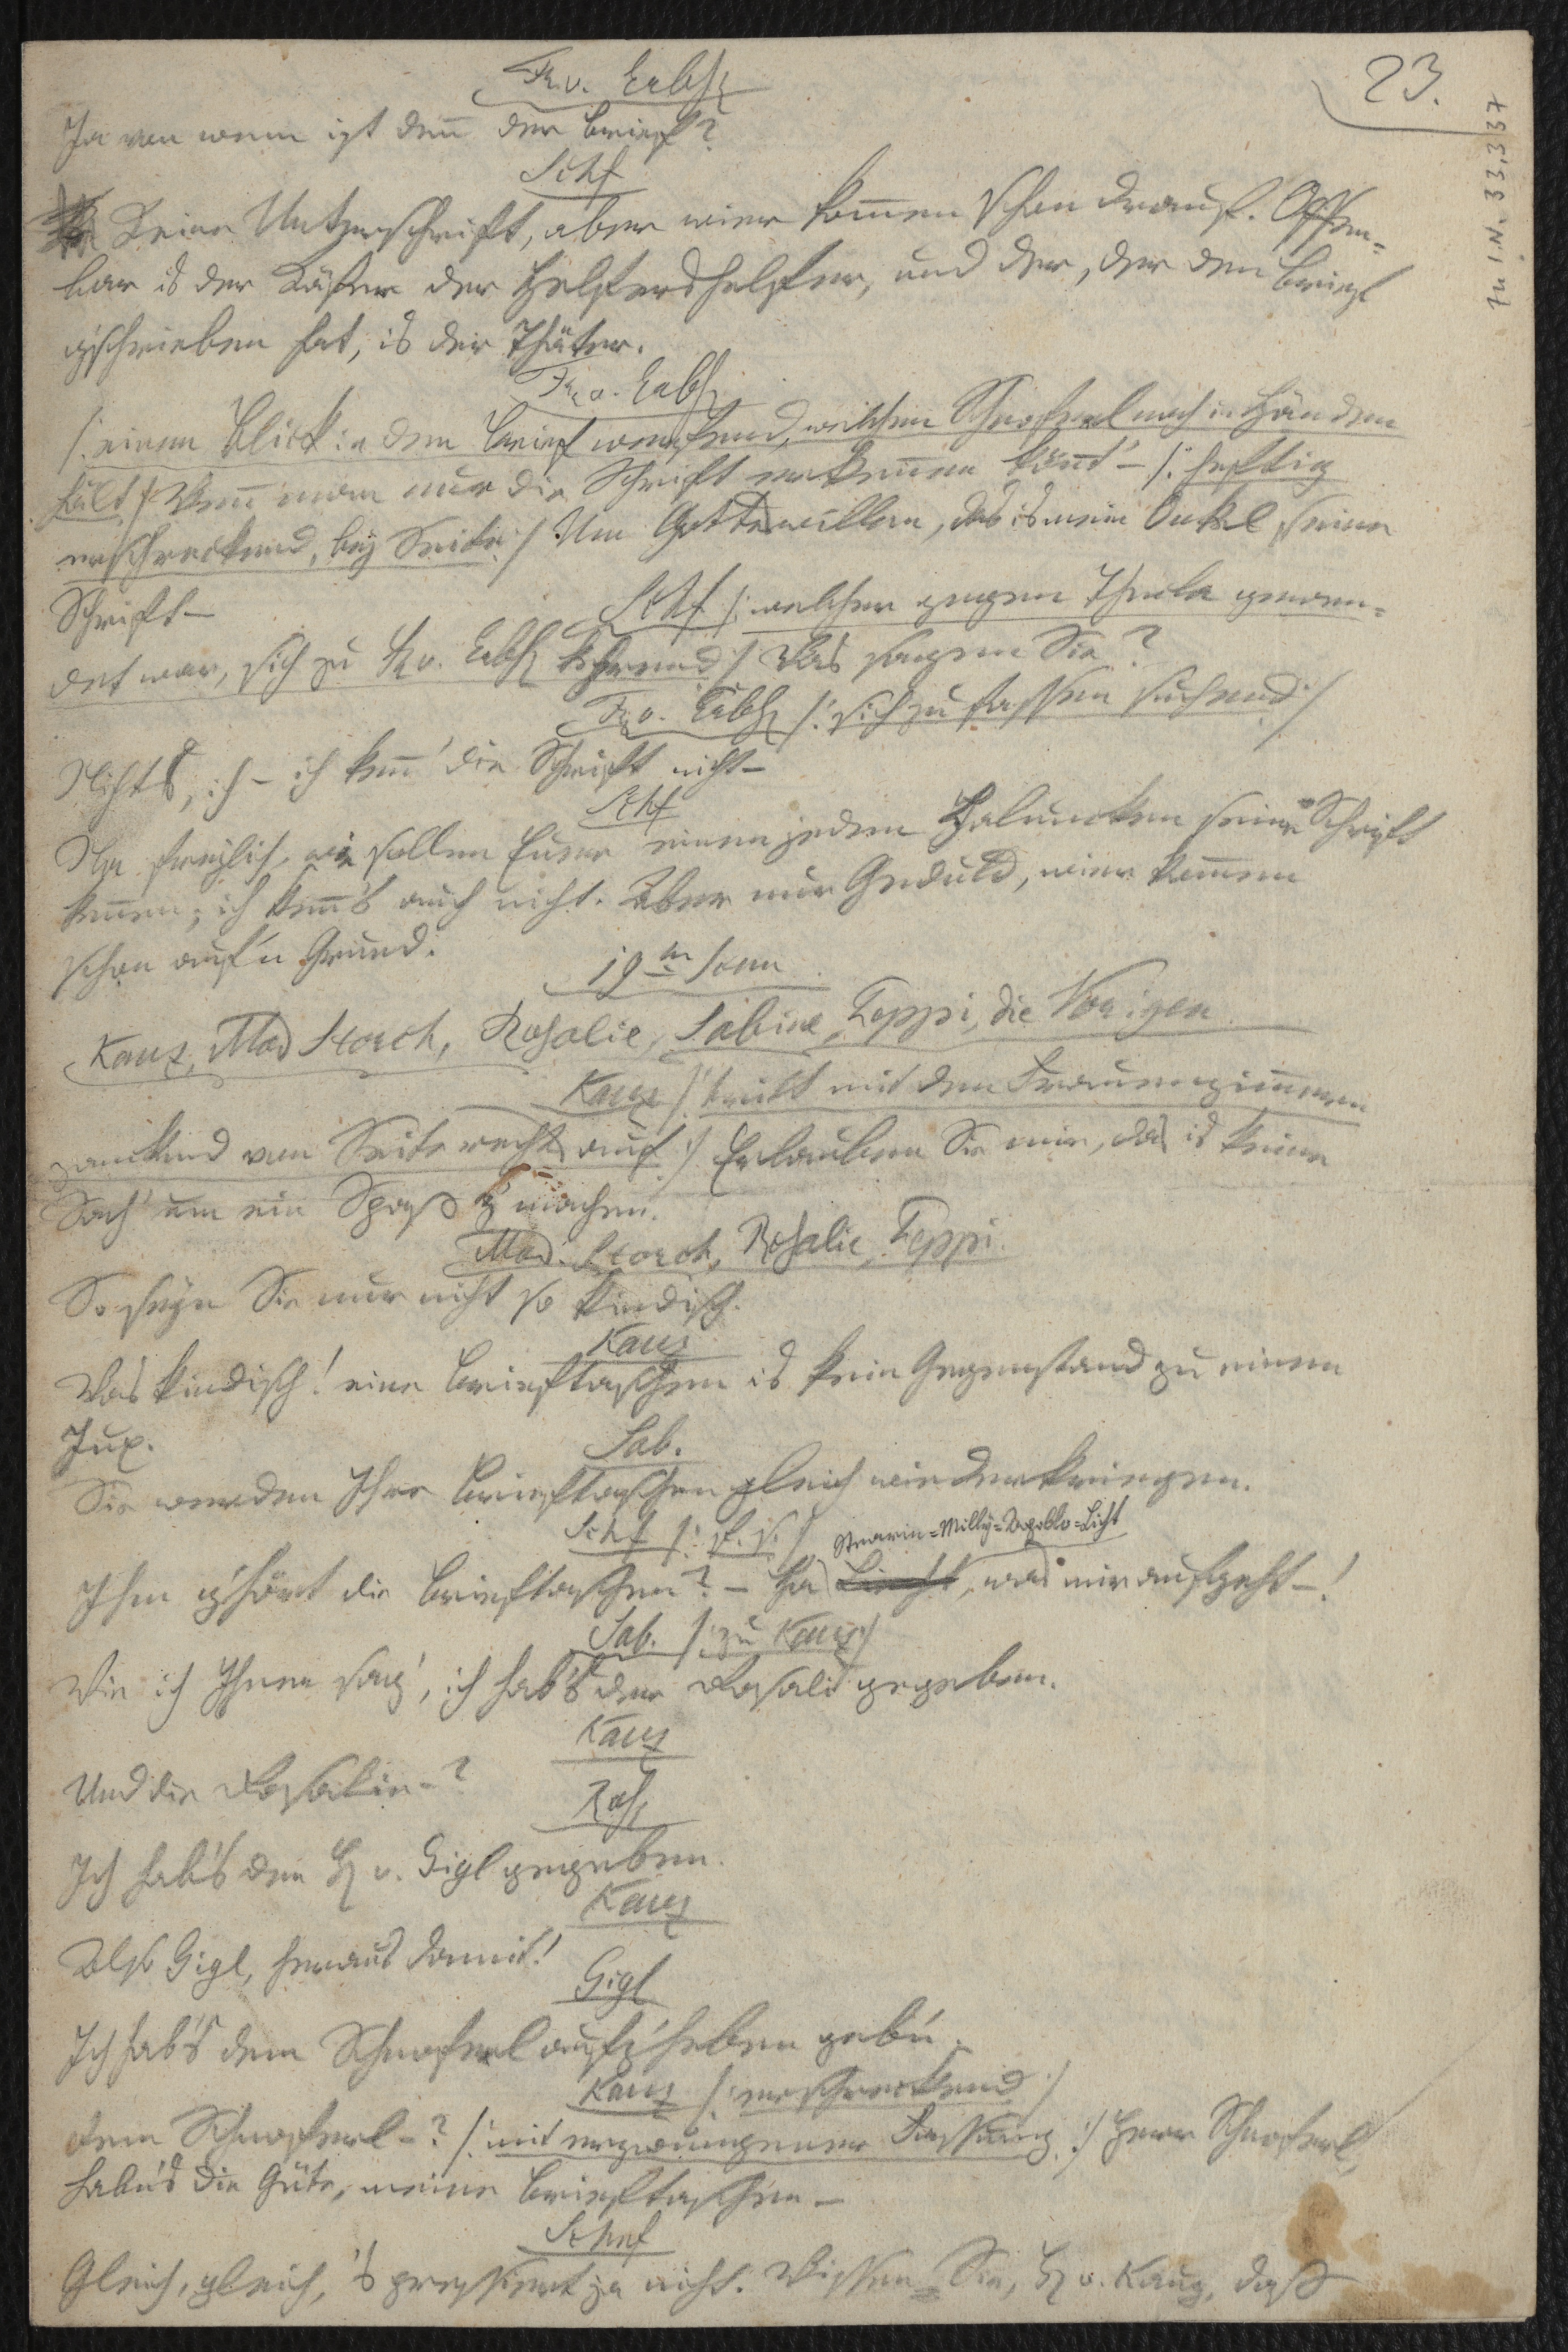 23.
Zu I.N. 33.337
Fr. v. Erbs
Ja von wem ist denn der Brief?
Schf
Keine Unterschrift, aber wier kommen schon drauf. Offen=
bar is der Käfer der Helfershelfer, und der, der den Brief
g'schrieben hat, is der Thäter.
Fr. v. Erbs
/: einen Blick in den Brief werfend, welchen Schnoferl noch in Händen
hält :/ Wenn man nur die Schrift erkennen könnt' – /: heftig
erschreckend, bey Seite :/ Um Gotteswillen, das is mein Onkel seine
Schrift –
Schf /: welcher gegen Thekla gewen=
det war, sich zu Fr. v. Erbs kehrend :/ Was sagen Sie?
Fr. v. Erbs /: sich zu fassen suchend :/
Nichts, ich – ich kenn' die Schrift nicht –
Schf
Na freylich, wie sollen Euer einen jeden Halunken seine Schrift
kennen; ich kenn's auch nicht. Aber nur Geduld, wier kommen
schon auf'n Grund.
19te Scene
Kauz, Mad Storch, Rosalie, Sabine, Peppi, die Vorigen
Kauz /: tritt mit den Frauenzimmern
zankend von Seite rechts auf :/ Erlauben Sie mir, das is keine
Sach' um ein Spaß z' machen.
Mad. Storch, Rosalie, Peppi.
So seyn Sie nur nicht so kindisch.
Kauz
Was kindisch! eine Brieftaschen is kein Gegenstand zu einem
Jux.
Sab.
Sie werden Ihre Brieftaschen gleich wiederkriegen.
Schf /: f. s. :/
Stearin=Milly=Apollo=Licht
Ihm g'hört die Brieftaschen? – Ha Licht, was mir aufgeht –!
Sab. /: zu Kauz :/
Wie ich Ihnen sag', ich hab's der Rosali gegeben.
Kauz
Und die Rosalie –?
Ros
Ich hab's den H v. Gigl gegeben.
Kauz
Also Gigl, heraus damit!
Gigl
Ich hab's dem Schnoferl aufz'heben geb'n.
Kauz /: erschreckend :/
Dem Schnoferl –? /: mit erzwungener Fassung :/ Herr Schnoferl,
hab'n's die Güte, meine Brieftaschen –
Schnf
Gleich, gleich, 's pressiert ja nicht. Wissen Sie, H v. Kauz, daß